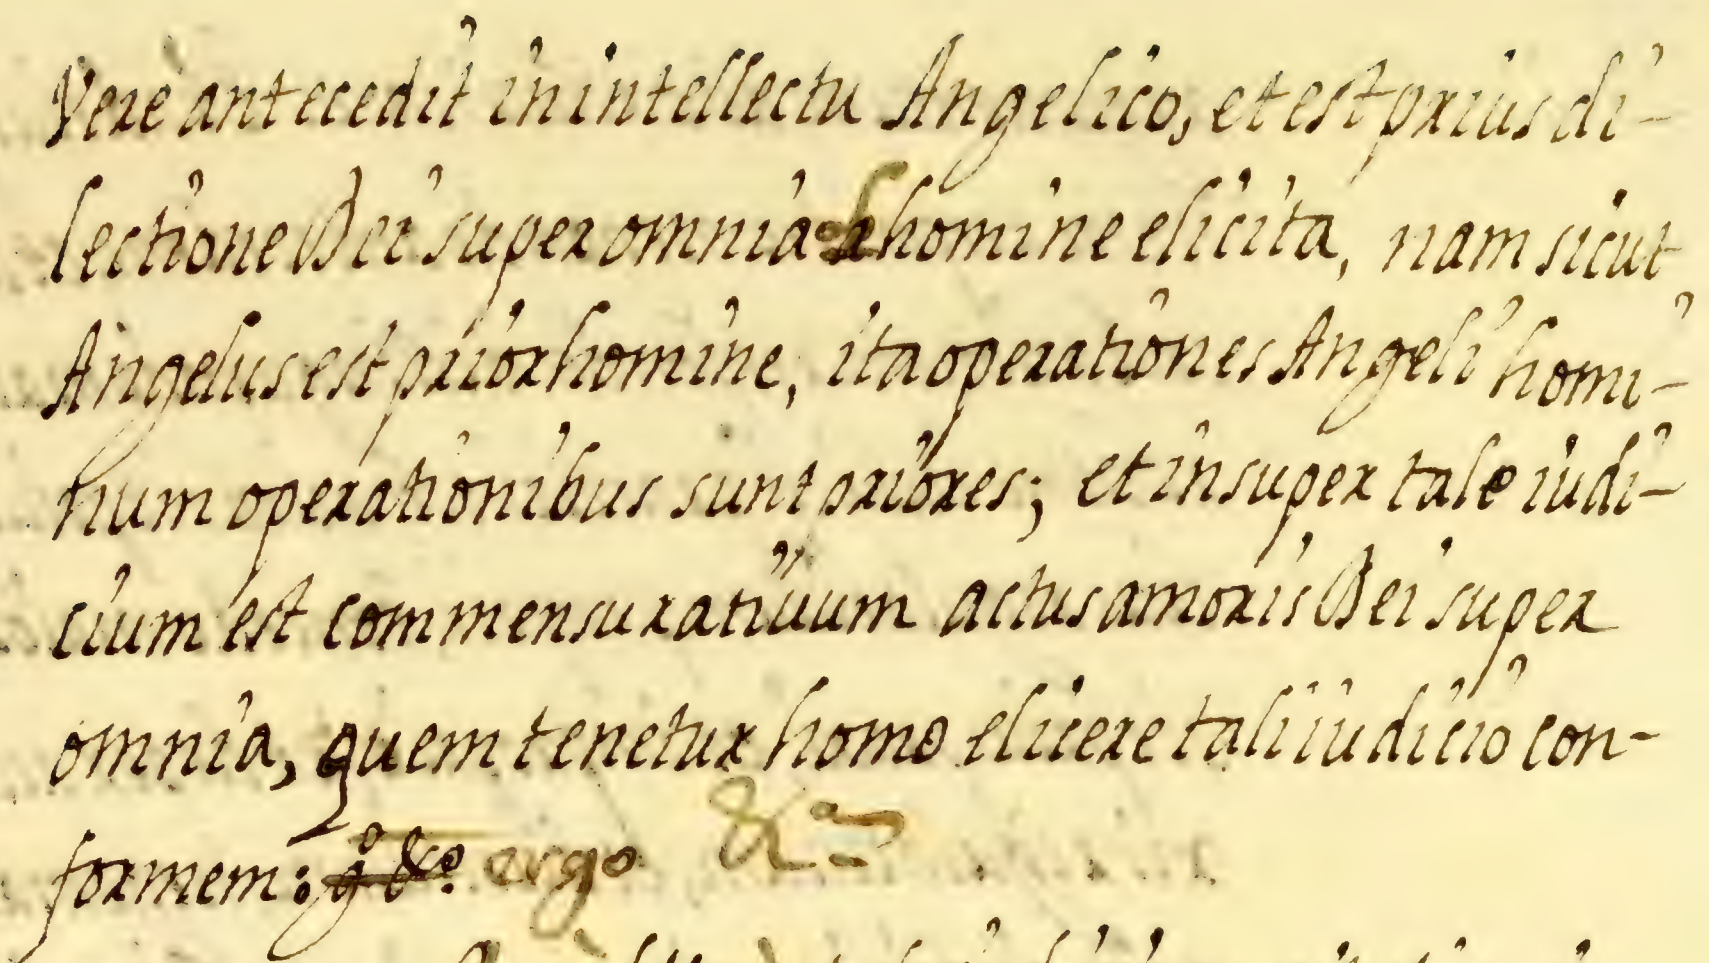 Verè antecedit in intellectu Angelico, et est prius di-
lectione Dei super omnia ab homine elicita, nam sicut
Angelus est prior homine, ita operationes Angeli homi-
num operationibus sunt priores; et insuper tale iudi-
cium est commensuratiuum actus amoris Dei super
omnia, quem tenetur homo elicere tali iudicio con-
formem: gº &c. ergo &c